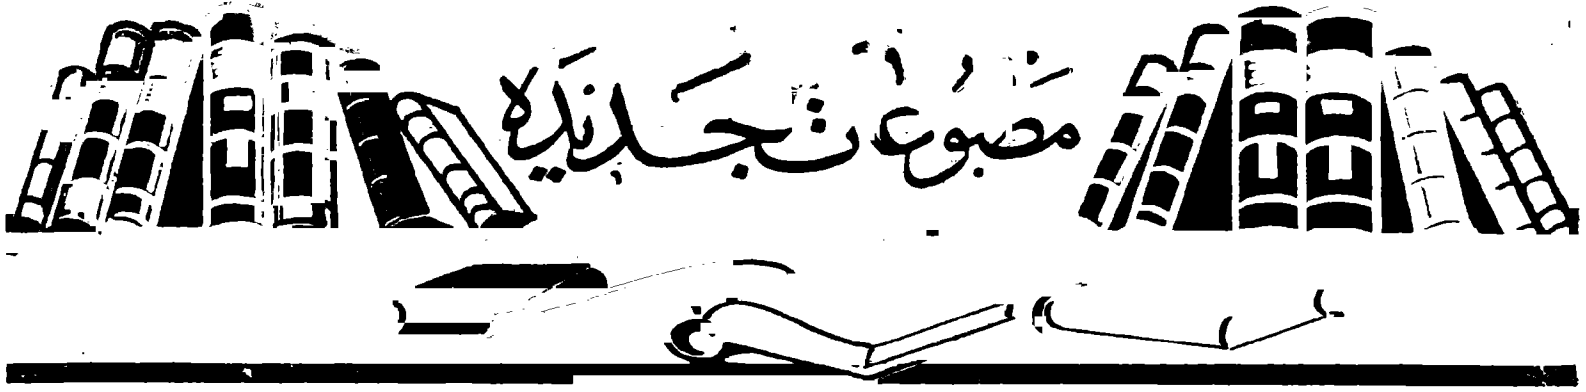 مطبوعات جدیدہ